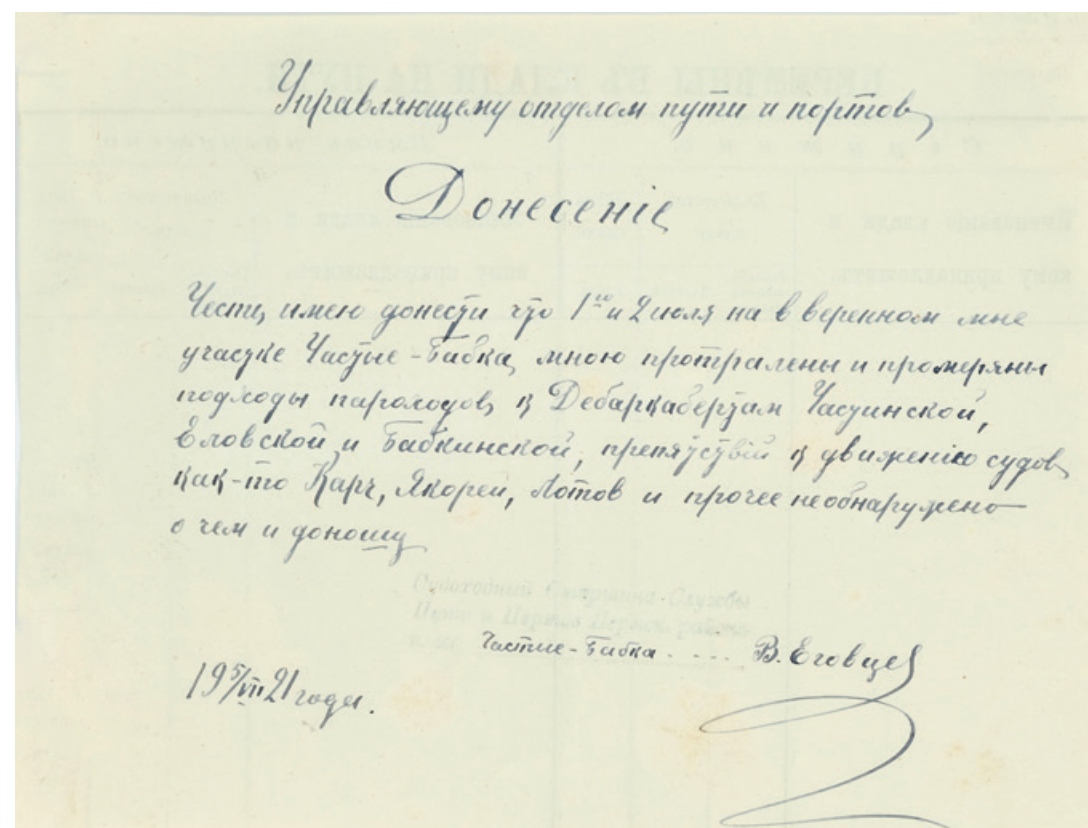 Управляющему отделом пути и портов
Донесеніе
Честь имею донести что 1го и 2 июля на вверенном мне
участке Частые-Бабка, мною протралены и промеряны
подходы пароходов к Дебаркабертам Частинской,
Еловской и Бабкинской, препятствий к движению судов,
как-то Карч, Якорей, Лотов и прочее необнаружено
о чем и доношу
Судоходный Старшина Службы
Пути и Портов Пермск. района
Частые-Бабка . . . . . В. Еговцев
19 5/VII 21 года.